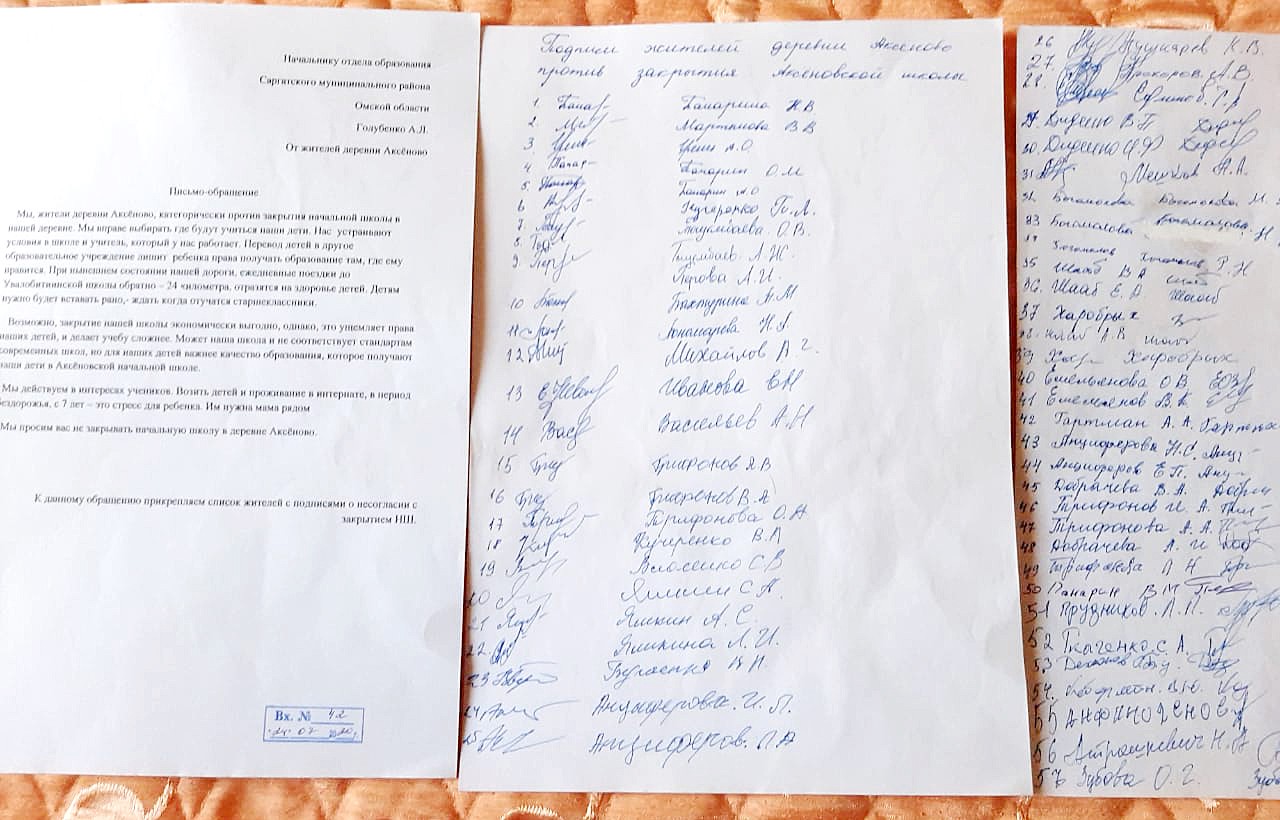 Начальнику отдела образования
Саргатского муниципального района
Омской области
Голубенко А.Л.
От жителей деревни Аксёново
Письмо-обращение
Мы, жители деревни Аксёново, категорически против закрытия начальной школы в
нашей деревне. Мы вправе выбирать где будут учиться наши дети. Нас устраивают
условия в школе и учитель, который у нас работает. Перевод детей в другое
образовательное учреждение лишит ребенка права получать образование там, где ему
нравится. При нынешнем состоянии нашей дороги, ежедневные поездки до
Увалобитиинской школы обратно – 24 километра, отразятся на здоровье детей. Детям
нужно будет вставать рано,- ждать когда отучатся старшеклассники.
Возможно, закрытие нашей школы экономически выгодно, однако, это ущемляет права
наших детей, и делает учебу сложнее. Может наша школа и не соответствует стандартам
современных школ, но для наших детей важнее качество образования, которое получают
наши дети в Аксёновской начальной школе.
Мы действуем в интересах учеников. Возить детей и проживание в интернате, в период
бездорожья, с 7 лет – это стресс для ребенка. Им нужна мама рядом
Мы просим вас не закрывать начальную школу в деревне Аксёново.
К данному обращению прикрепляем список жителей с подписями о несогласии с
закрытием НШ.
Вх. № 42
24 07
Подписи жителей деревни Аксёново
против закрытия Аксёновской школы
1. Панарина Н В
2. Мартынова В В
3
4 Панарин О М
5. Панарин
6 Кучеренко
7. О. В.
8. Л. Ж.
9. Попова Л. И.
10 Бахтурина А М
11 Пономарева Н. А.
12 Михайлов А. Г.
13 Ивахова Е Н
14 Васильев А Н
15
16 В. А
17 Трифонова О. А
18 Кучеренко В. А
19 Власенко С В
20 Яшкин С А.
21 Яшкин А. С.
22. Яшкина Л. И.
23
24 Анциферова. И. П.
25 Анциферов. П А
26 Кушнарев К. В.
27. Прохоров А. В.
28.
29. Диденко В. П
30. Диденко
31 Мешков А. А.
32 Богомолова М.
33 Богомолова
34 Р. Н
35 Шааб В А
36. Шааб Е. А
37 Харобрых
38. А. В
39 Харобрых
40 Емельянова О В.
41 Емельянов В. К
42 Гартман А. А.
43 Анциферова Н. С.
44 Анциферов Е П.
45 Добрачева В. А.
46 Трифонов И. А.
47 Трифонова А. А.
48 Добрачева А. И
49 Трифонова Л Н
50 Панарин В М
51 Грузников. Л. П.
52 Ткаченко С А.
53
54. В. Ю.
55 АНФИНОГЕНОВ
56 Н. А
57 Зубова О. Г.